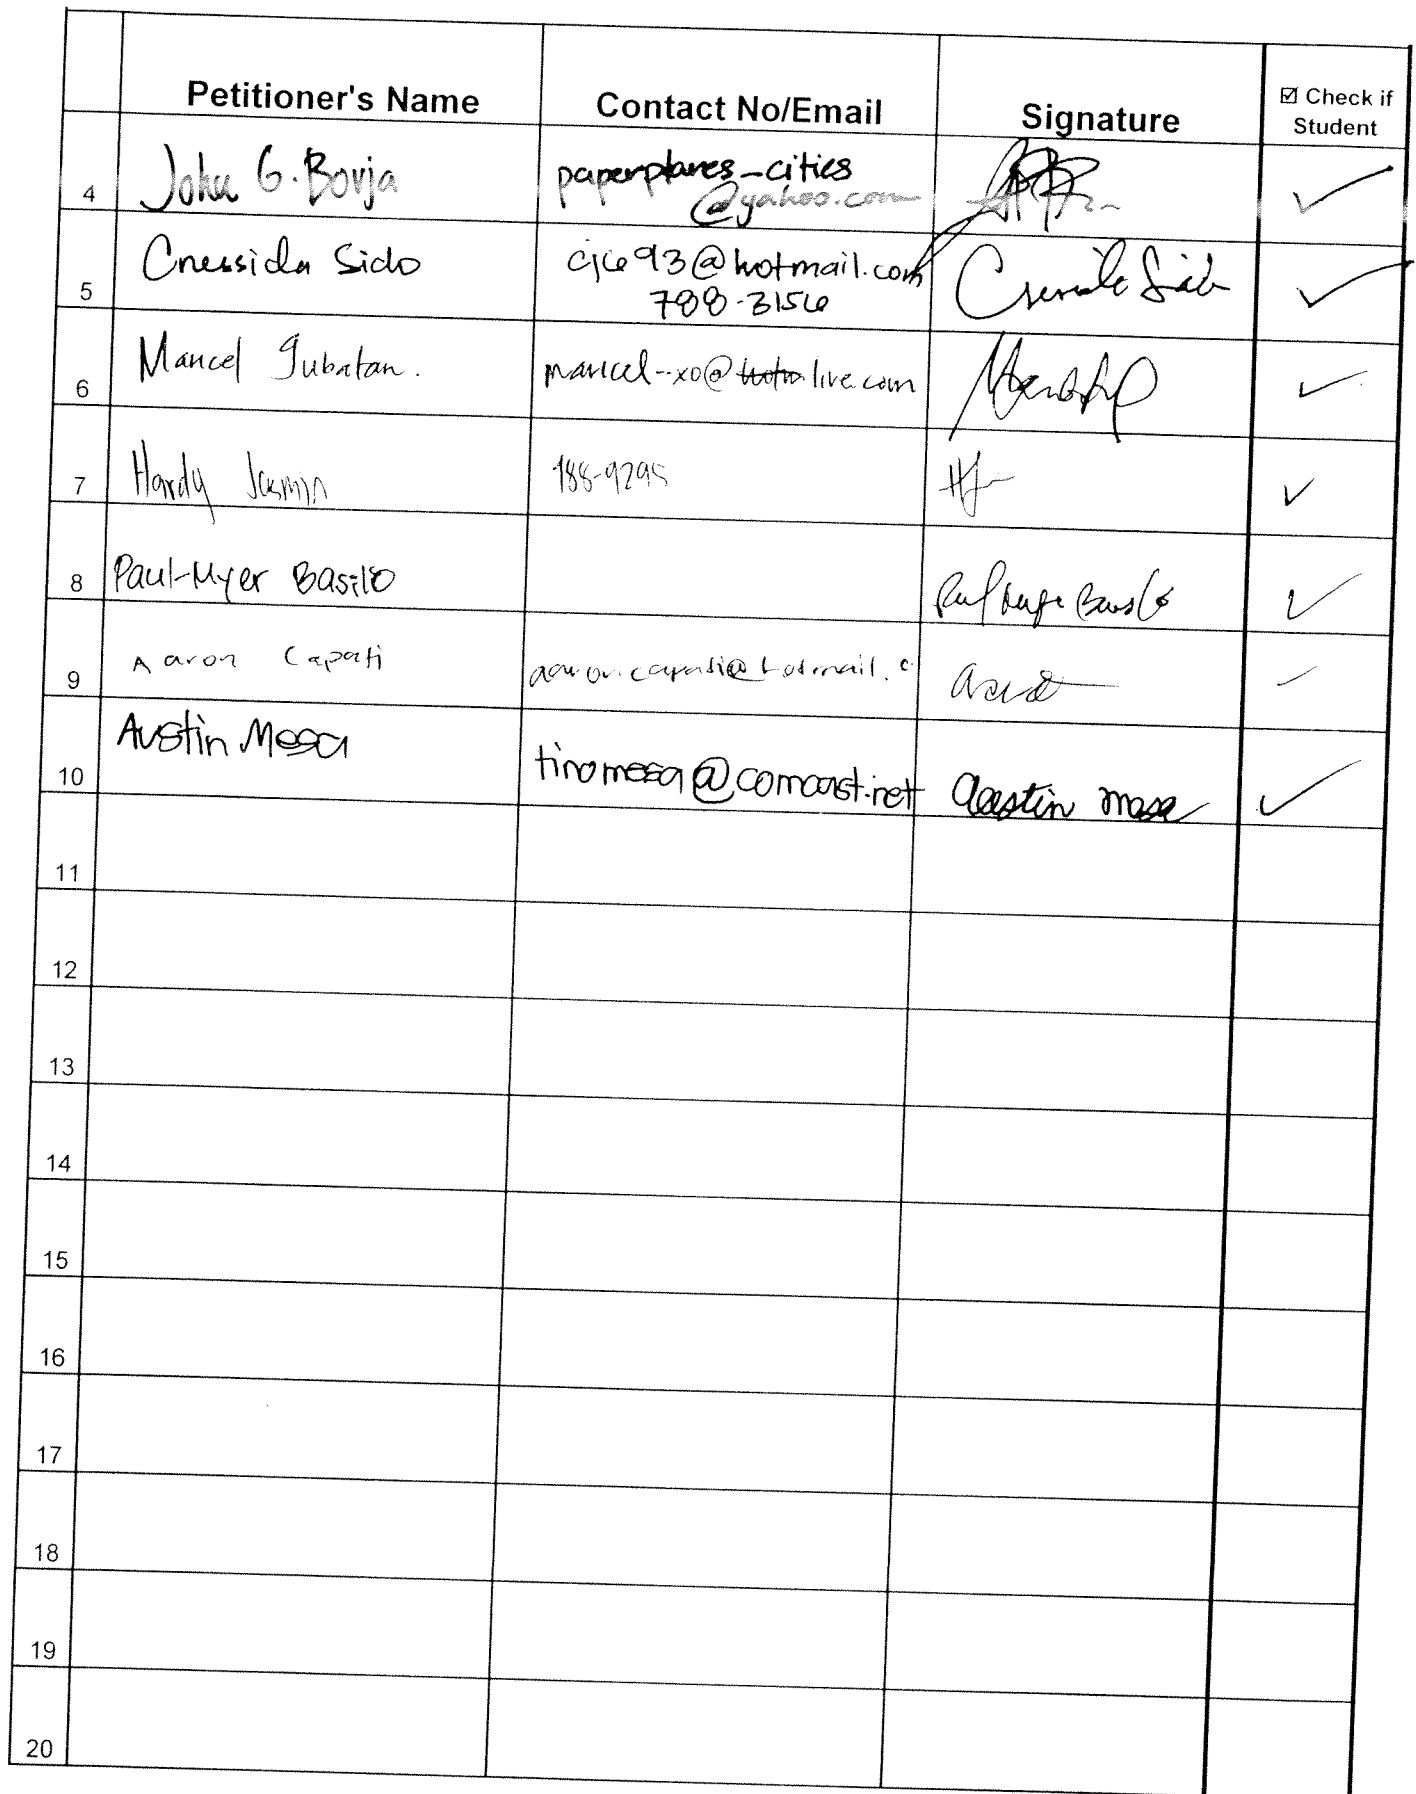 Petitioner's Name Contact No/Email Signature ☑ Check if
Student
4 John G. Borja paperplanes_cities
@yahoo.com
5 Cressida Sido cjc693@hotmail.com Cressida Sido
788-3156
6 Maricel Jubatan. maricel--xo@ live.com
7 Hardy Jasmin 788-9295
8 Paul-Myer Basilio
9 Aaron Capati aaron.capati@hotmail.c
10 Austin Mesa tinomesa@comcast.net Austin Mesa
11
12
13
14
15
16
17
18
19
20